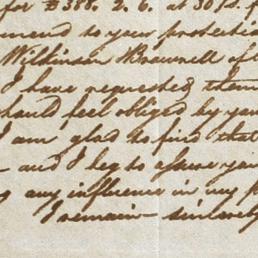 for £388. 2. 6. at 30/d.
mend to your protection
Wilkinson Brownell of
I have requested them
should feel obliged by your
I am glad to find that
- and I beg to assure you
any influence in my p
I remain sincerely